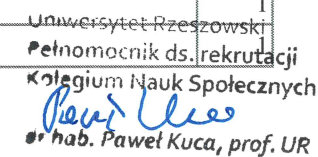 1
Uniwersytet Rzeszowski
Pełnomocnik ds. rekrutacji 1
Kolegium Nauk Społecznych
dr hab. Paweł Kuca, prof. UR